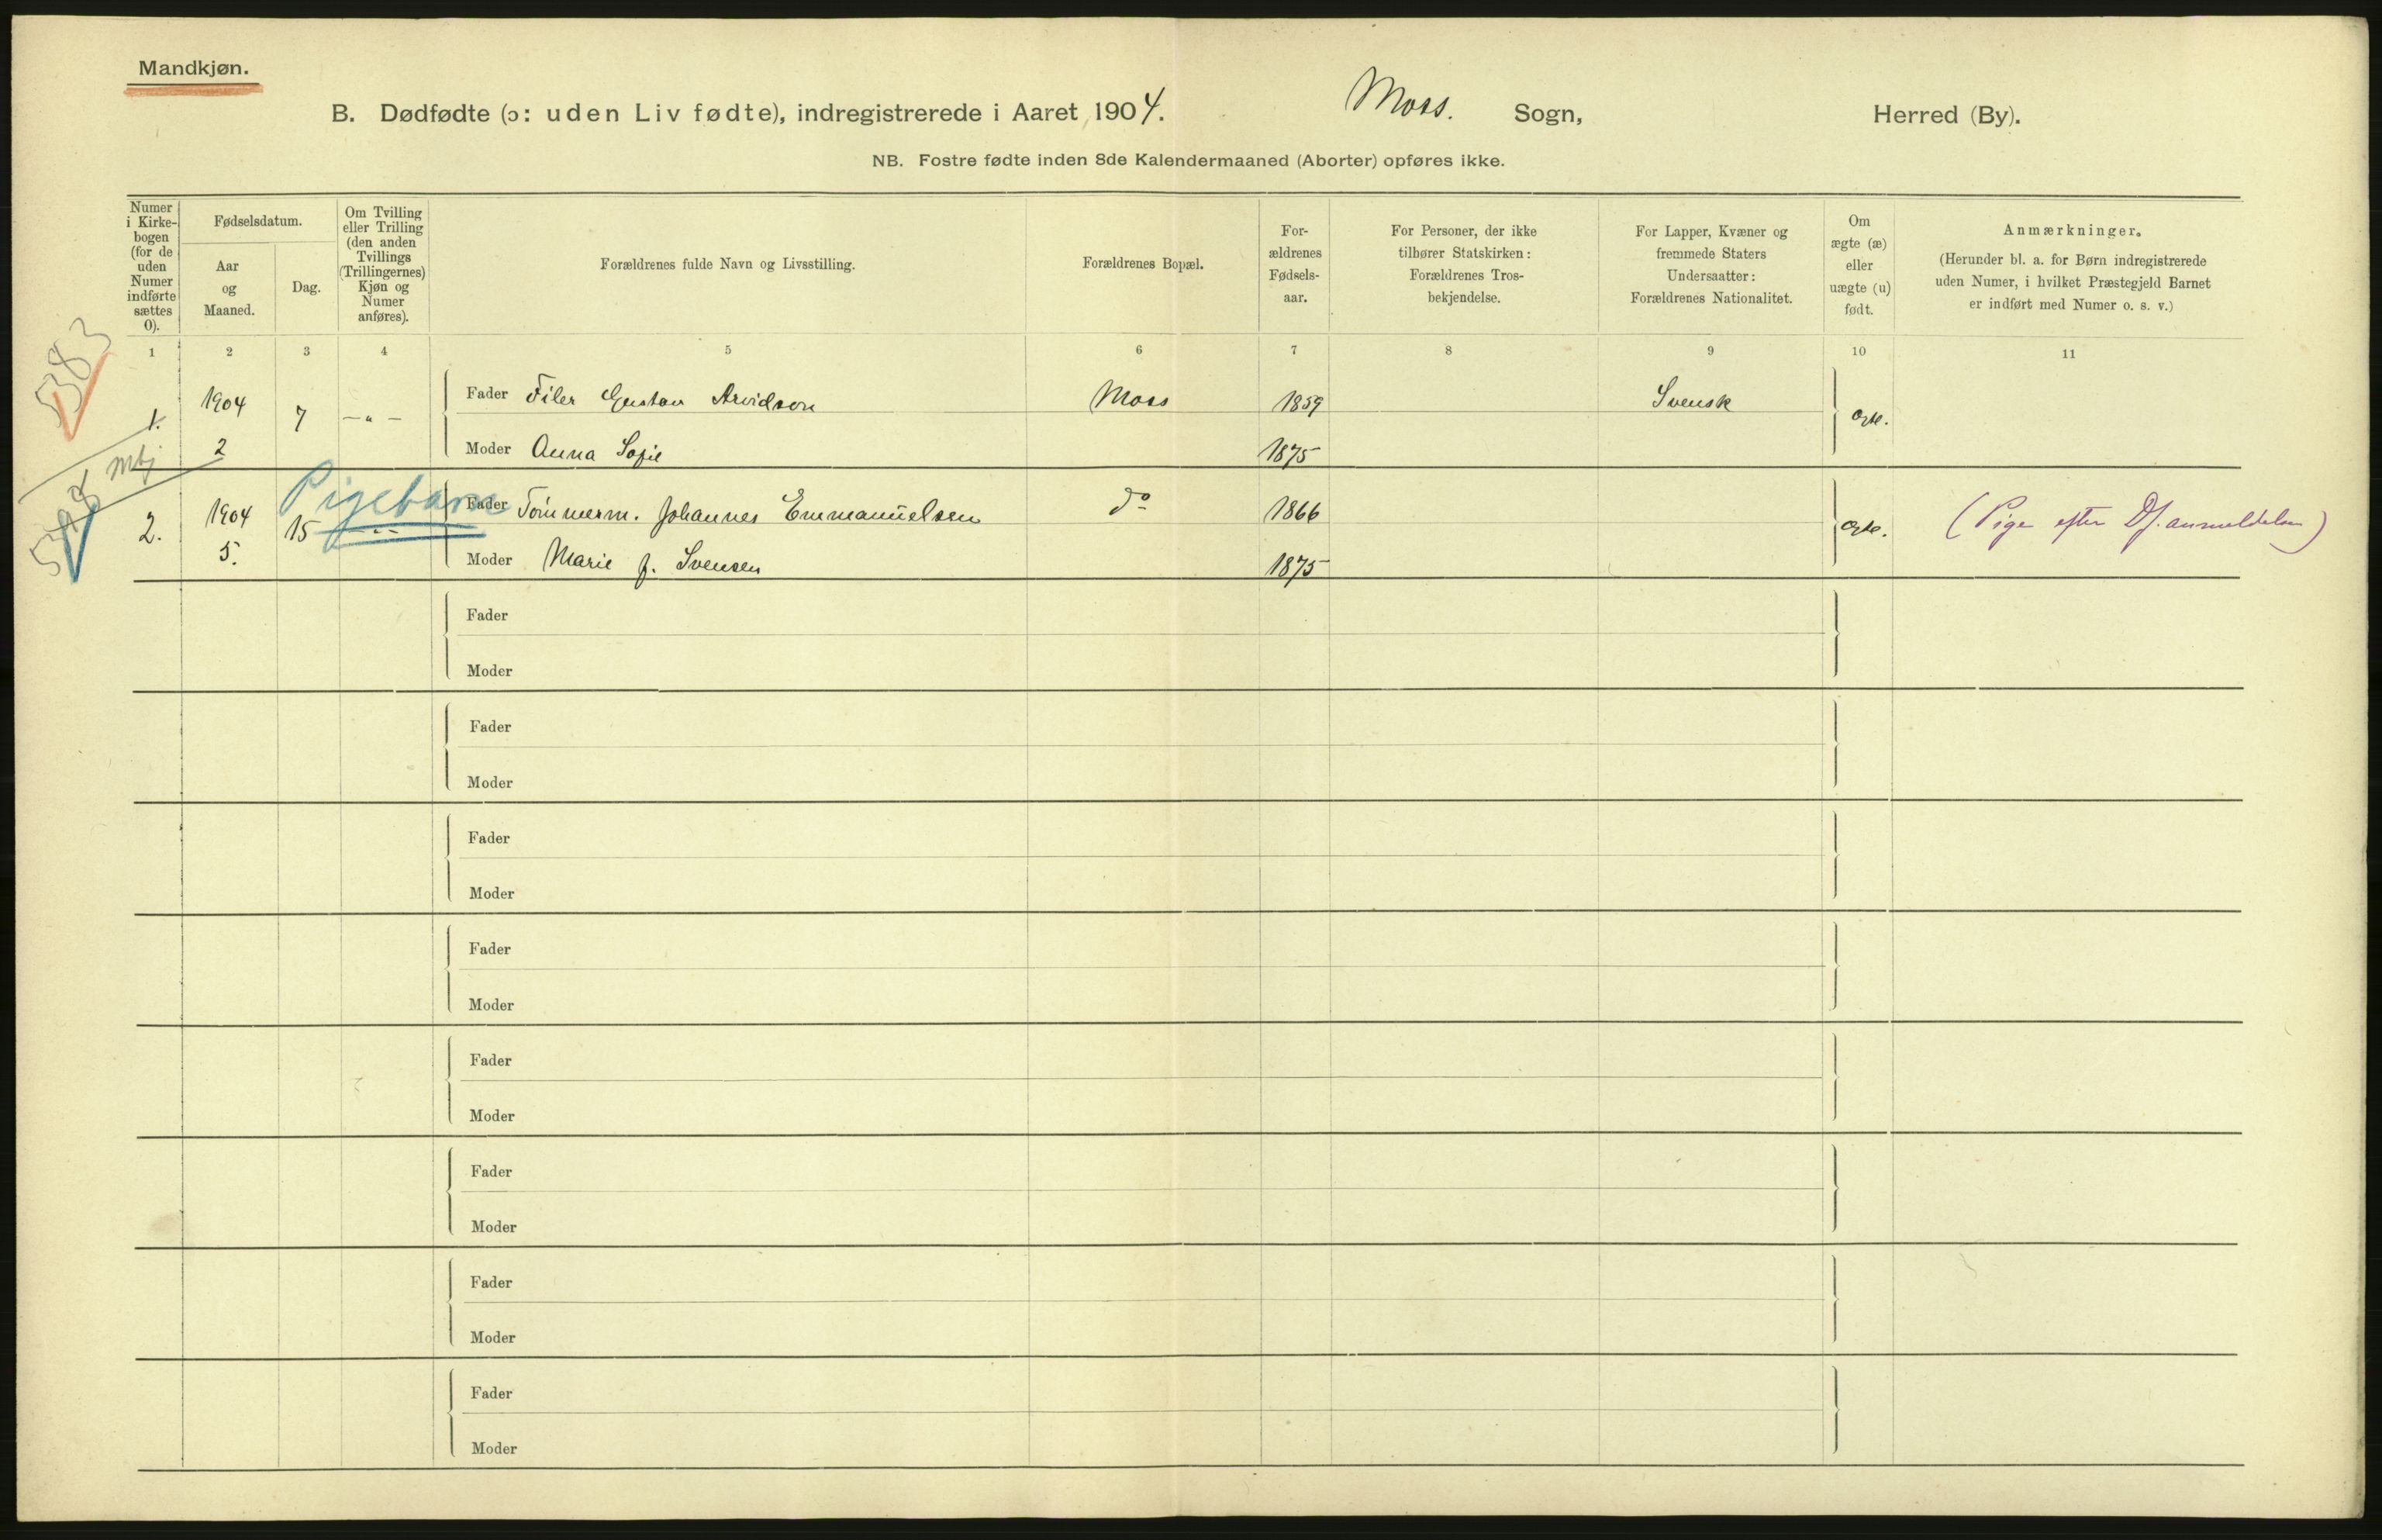 Mandkjøn.
B. Dødfødte (ɔ: uden Liv fødte), indregistrerede i Aaret 1904. Moss. Sogn, Herred (By).
NB. Fostre fødte inden 8de Kalendermaaned (Aborter) opføres ikke.
Numer
i Kirke-
bogen
(for de
uden
Numer
indførte
sættes
0).
Fødselsdatum.
Aar
og
Maaned.
Dag.
Om Tvilling
eller Trilling
(den anden
Tvillings
(Trillingernes)
Kjøn og
Numer
anføres).
Forældrenes fulde Navn og Livsstilling.
Forældrenes Bopæl.
For-
ældrenes
Fødsels-
aar.
For Personer, der ikke
tilhører Statskirken:
Forældrenes Tros-
bekjendelse.
For Lapper, Kvæner og
fremmede Staters
Undersaatter:
Forældrenes Nationalitet.
Om
ægte (æ)
eller
uægte (u)
født.
Anmærkninger.
(Herunder bl. a. for Børn indregistrerede
uden Numer, i hvilket Præstegjeld Barnet
er indført med Numer o. s. v.)
1 2 3 4 5 6 7 8 9 10 11
5383
1. 1904 7 — „ — Fader Filer Gustav Arvidson Moss 1859 Svensk Ægte.
2 Moder Anna Sofie 1875
Pigebarn
2. 1904 15 Fader Tømmerm. Johannes Emmanuelsen do 1866 Ægte. (Pige efter Df. anmeldelsen)
5. Moder Marie J. Svensen 1875
Fader
Moder
Fader
Moder
Fader
Moder
Fader
Moder
Fader
Moder
Fader
Moder
Fader
Moder
Fader
Moder